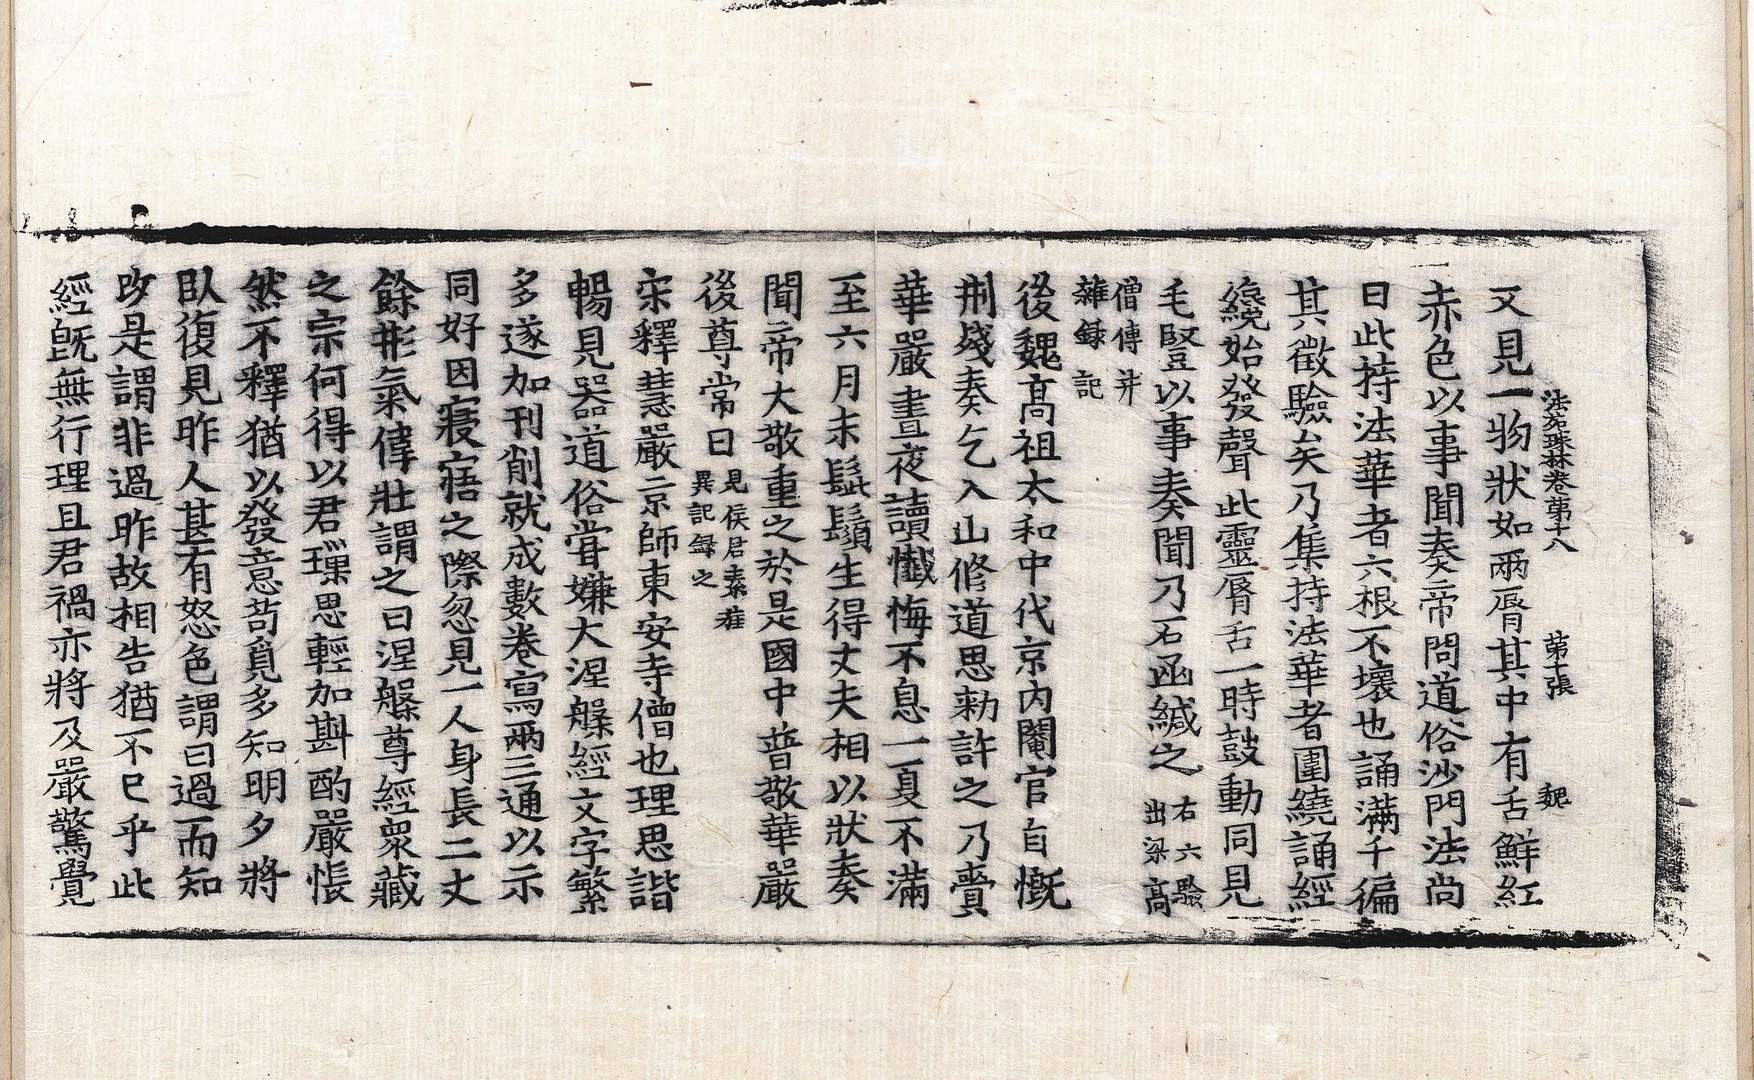 法苑珠林卷第十八　第十張　魏
又見一物狀如兩脣其中有舌鮮紅
赤色以事聞奏帝問道俗沙門法尚
曰此持法華者六根不壞也誦滿千徧
其徵驗矣乃集持法華者圍繞誦經
繞始發聲此靈脣舌一時鼓動同見
毛豎以事奏聞乃石函緘之右六驗出梁高
僧傳并雜録記
後魏高祖太和中代京內閹官自慨
刑殘奏乞入山修道思勑許之乃賷
華嚴晝夜讀懺悔不息一夏不滿
至六月末髭鬚生得丈夫相以狀奏
聞帝大敬重之於是國中普敬華嚴
後尊常日見侯君素旌異記録之
宋釋慧嚴京師東安寺僧也理思諧
暢見器道俗甞嫌大涅槃經文字繁
多遂加刊削就成數卷寫兩三通以示
同好因寢寤之際忽見一人身長二丈
餘形氣偉壯謂之曰涅槃尊經衆藏
之宗何得以君璅思輕加斟酌嚴悵
然不釋猶以發意苟覓多知明夕將
臥復見昨人甚有怒色謂曰過而知
改是謂非過昨故相告猶不已乎此
經旣無行理且君禍亦將及嚴驚覺